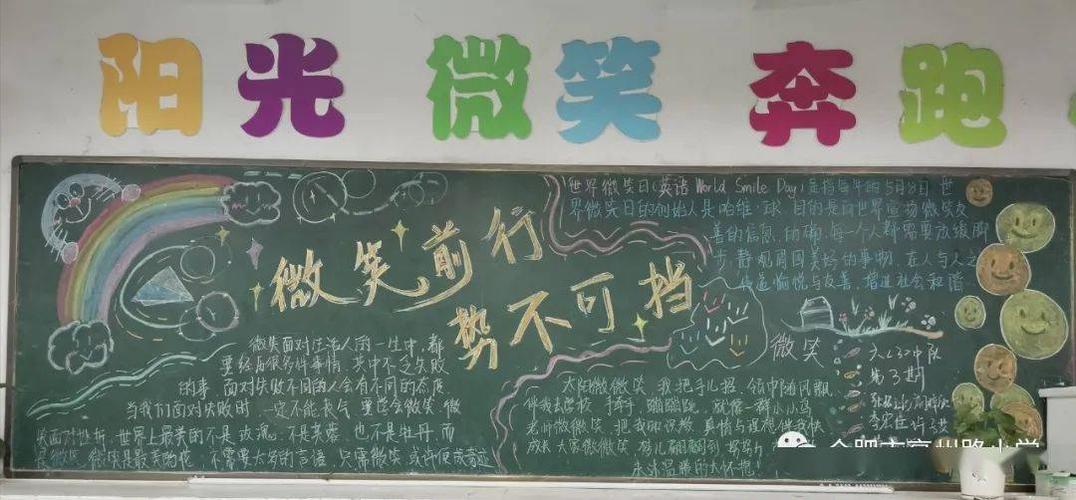 阳光 微笑 奔跑
微笑前行
势不可挡
世界微笑日(英语 World Smile Day)是指每年的5月8日 世
界微笑日的创始人是哈维·球 目的是向世界宣扬微笑友
善的信息 的确,每一个人都需要放缓脚
步 静观周围美好的事物 在人与人之
传递愉悦与友善,增进社会和谐
微笑面对生活人的一生中,都
要经历很多件事情 其中不乏失败
的事 面对失败不同的人会有不同的态度
当我们面对失败时 一定不能丧气 要学会微笑 微
笑面对挫折 世界上最美的不是玫瑰 不是芙蓉 也不是牡丹 而
是微笑 微笑是最美的花 不需要太多的言语 只需微笑
微笑
太阳微微笑 我把手儿招 领巾随风飘
伴我去学校 蹦蹦跳 就像一群小小鸟
老师微微笑 把我知识教
成长
永沐温暖的大怀抱!
中队
第3期
合肥市亳州路小学